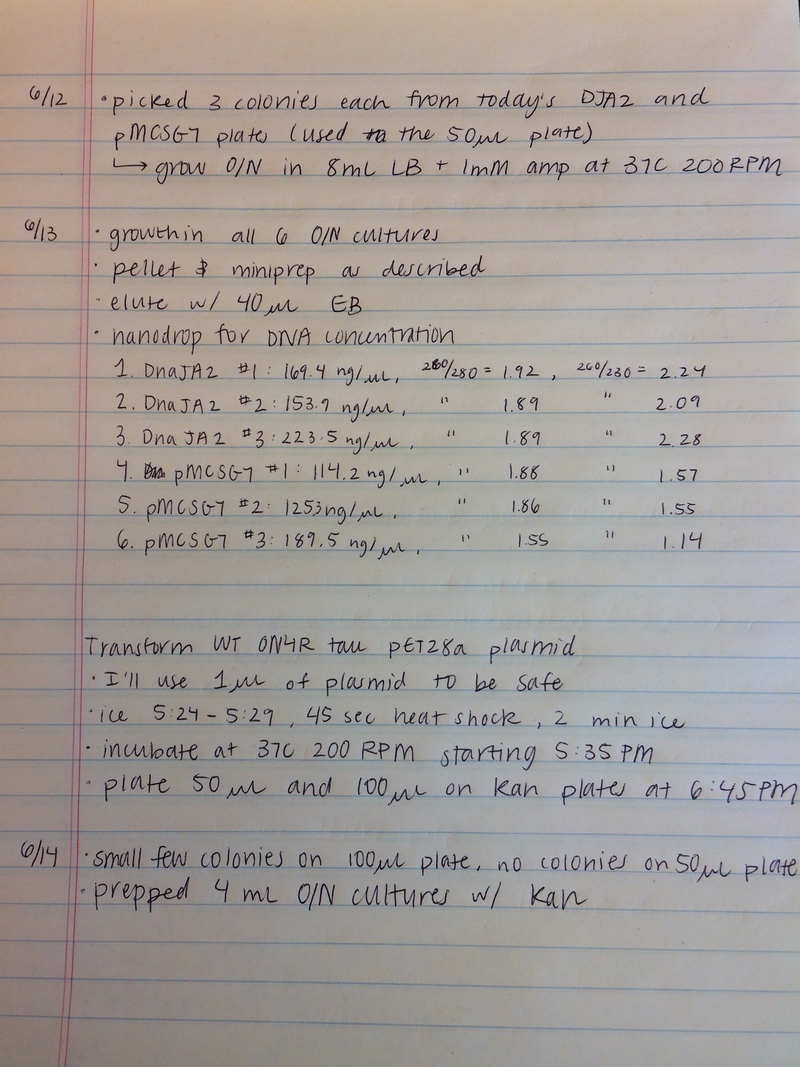 6/12 · picked 3 colonies each from today's DJA2 and
pMCSG7 plates (used the 50µL plate)
↳ grow O/N in 8mL LB + 1mM amp at 37C 200RPM
6/13 · growth in all 6 O/N cultures
· pellet & miniprep as described
· elute w/ 40µL EB
· nanodrop for DNA concentration
1. DnaJA2 #1: 169.4 ng/µL, 260/280 = 1.92, 260/230 = 2.24
2. DnaJA2 #2: 153.9 ng/µL, " 1.89 " 2.09
3. DnaJA2 #3: 223.5 ng/µL, " 1.89 " 2.28
4. pMCSG7 #1: 114.2 ng/µL, " 1.88 " 1.57
5. pMCSG7 #2: 125.3 ng/µL, " 1.86 " 1.55
6. pMCSG7 #3: 189.5 ng/µL, " 1.55 " 1.14
Transform WT 0N4R tau pET28a plasmid
· I'll use 1µL of plasmid to be safe
· ice 5:24 - 5:29, 45 sec heat shock, 2 min ice
· incubate at 37C 200 RPM starting 5:35 PM
· plate 50µL and 100µL on Kan plates at 6:45PM
6/14 · small few colonies on 100µL plate, no colonies on 50µL plate
· prepped 4 mL O/N cultures w/ Kan